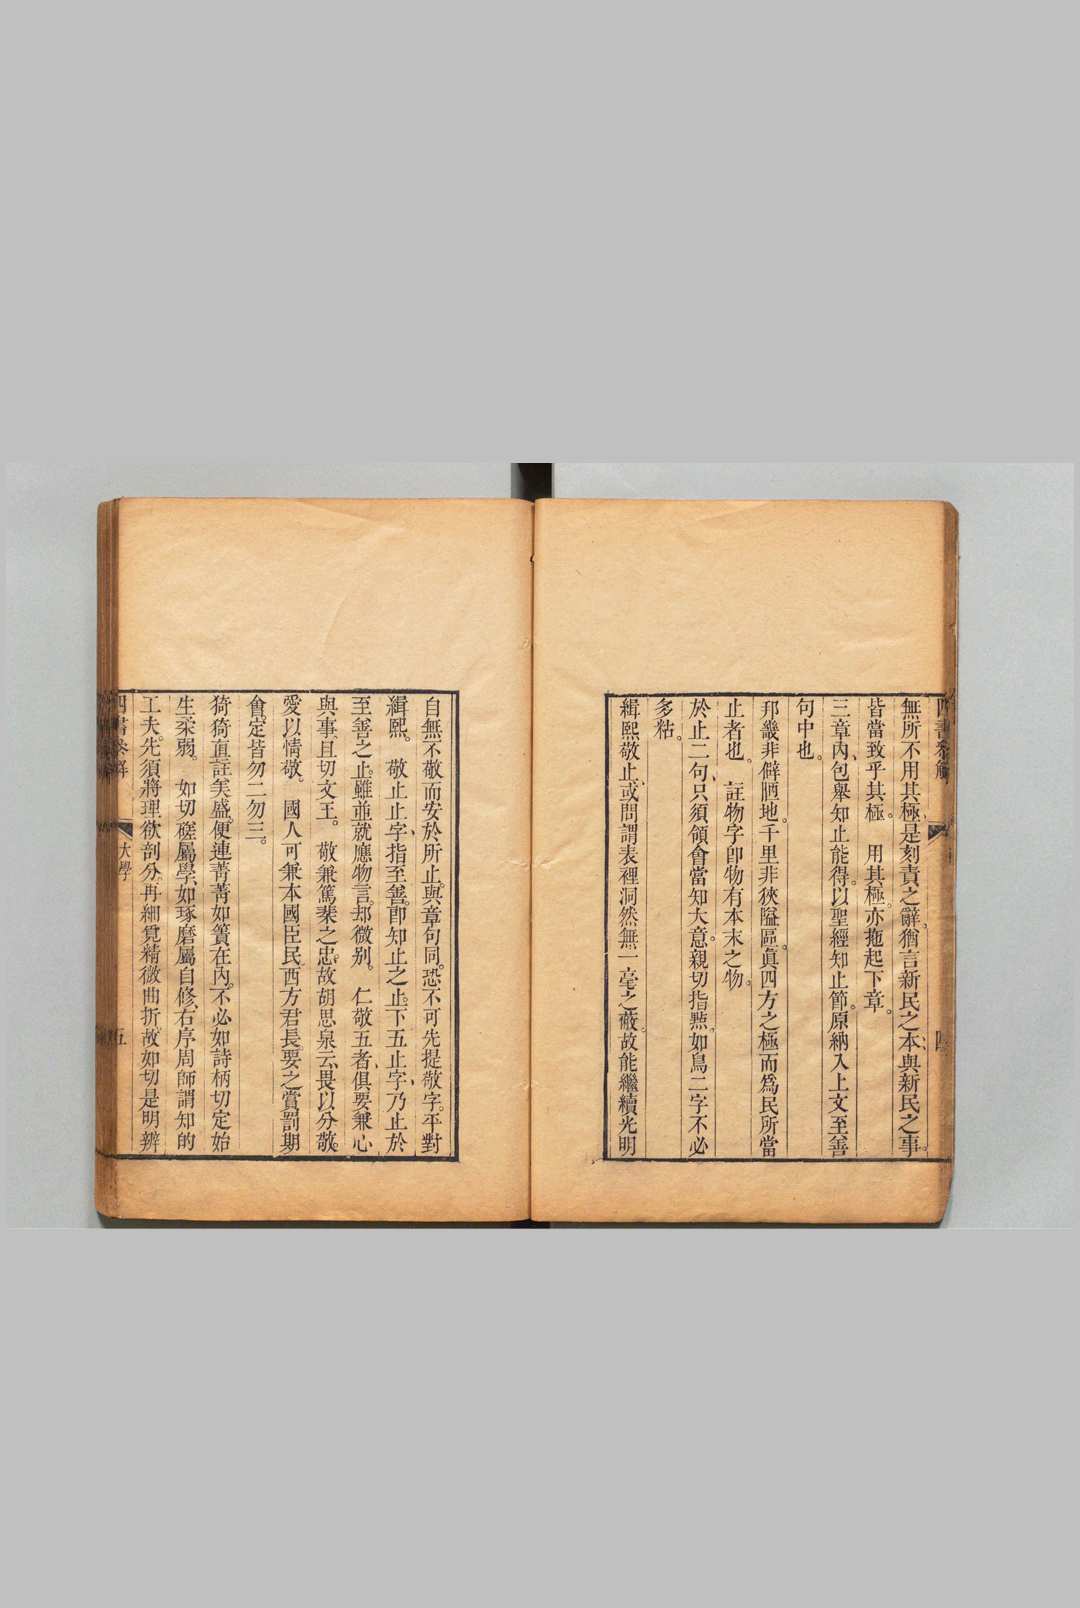 無所不用其極是刻責之辭、猶言新民之本與新民之事。
皆當致乎其極。 用其極。亦拖起下章。
三章內、包舉知止能得。以聖經知止節。原納入上文至善
句中也。
邦畿非僻陋地。千里非狹隘區。眞四方之極而爲民所當
止者也。 註物字卽物有本末之物。
於止二句、只須領會當知大意。親切指㸃。如鳥二字不必
多粘。
緝熙敬止、或問謂表裡洞然無一毫之蔽。故能繼續光明
自無不敬而安於所止。與章句同。恐不可先提敬字。平對
緝熙。 敬止止字、指至善。卽知止之止。下五止字、乃止於
至善之止。雖並就應物言。却微别。 仁敬五者、俱要兼心
與事、且切文王。 敬兼篤棐之忠。故胡思泉云、畏以分敬。
愛以情敬。 國人可兼本國臣民。西方君長。要之賞罰期
會。定皆勿二勿三。
猗猗直註美盛。便連菁菁如簀在內。不必如詩柄切定始
生柔弱。 如切磋屬學、如琢磨屬自修、右序周師謂知的
工夫。先須將理欲剖分。再細覓精微曲折。故如切是明辨
四書參解
大學
五